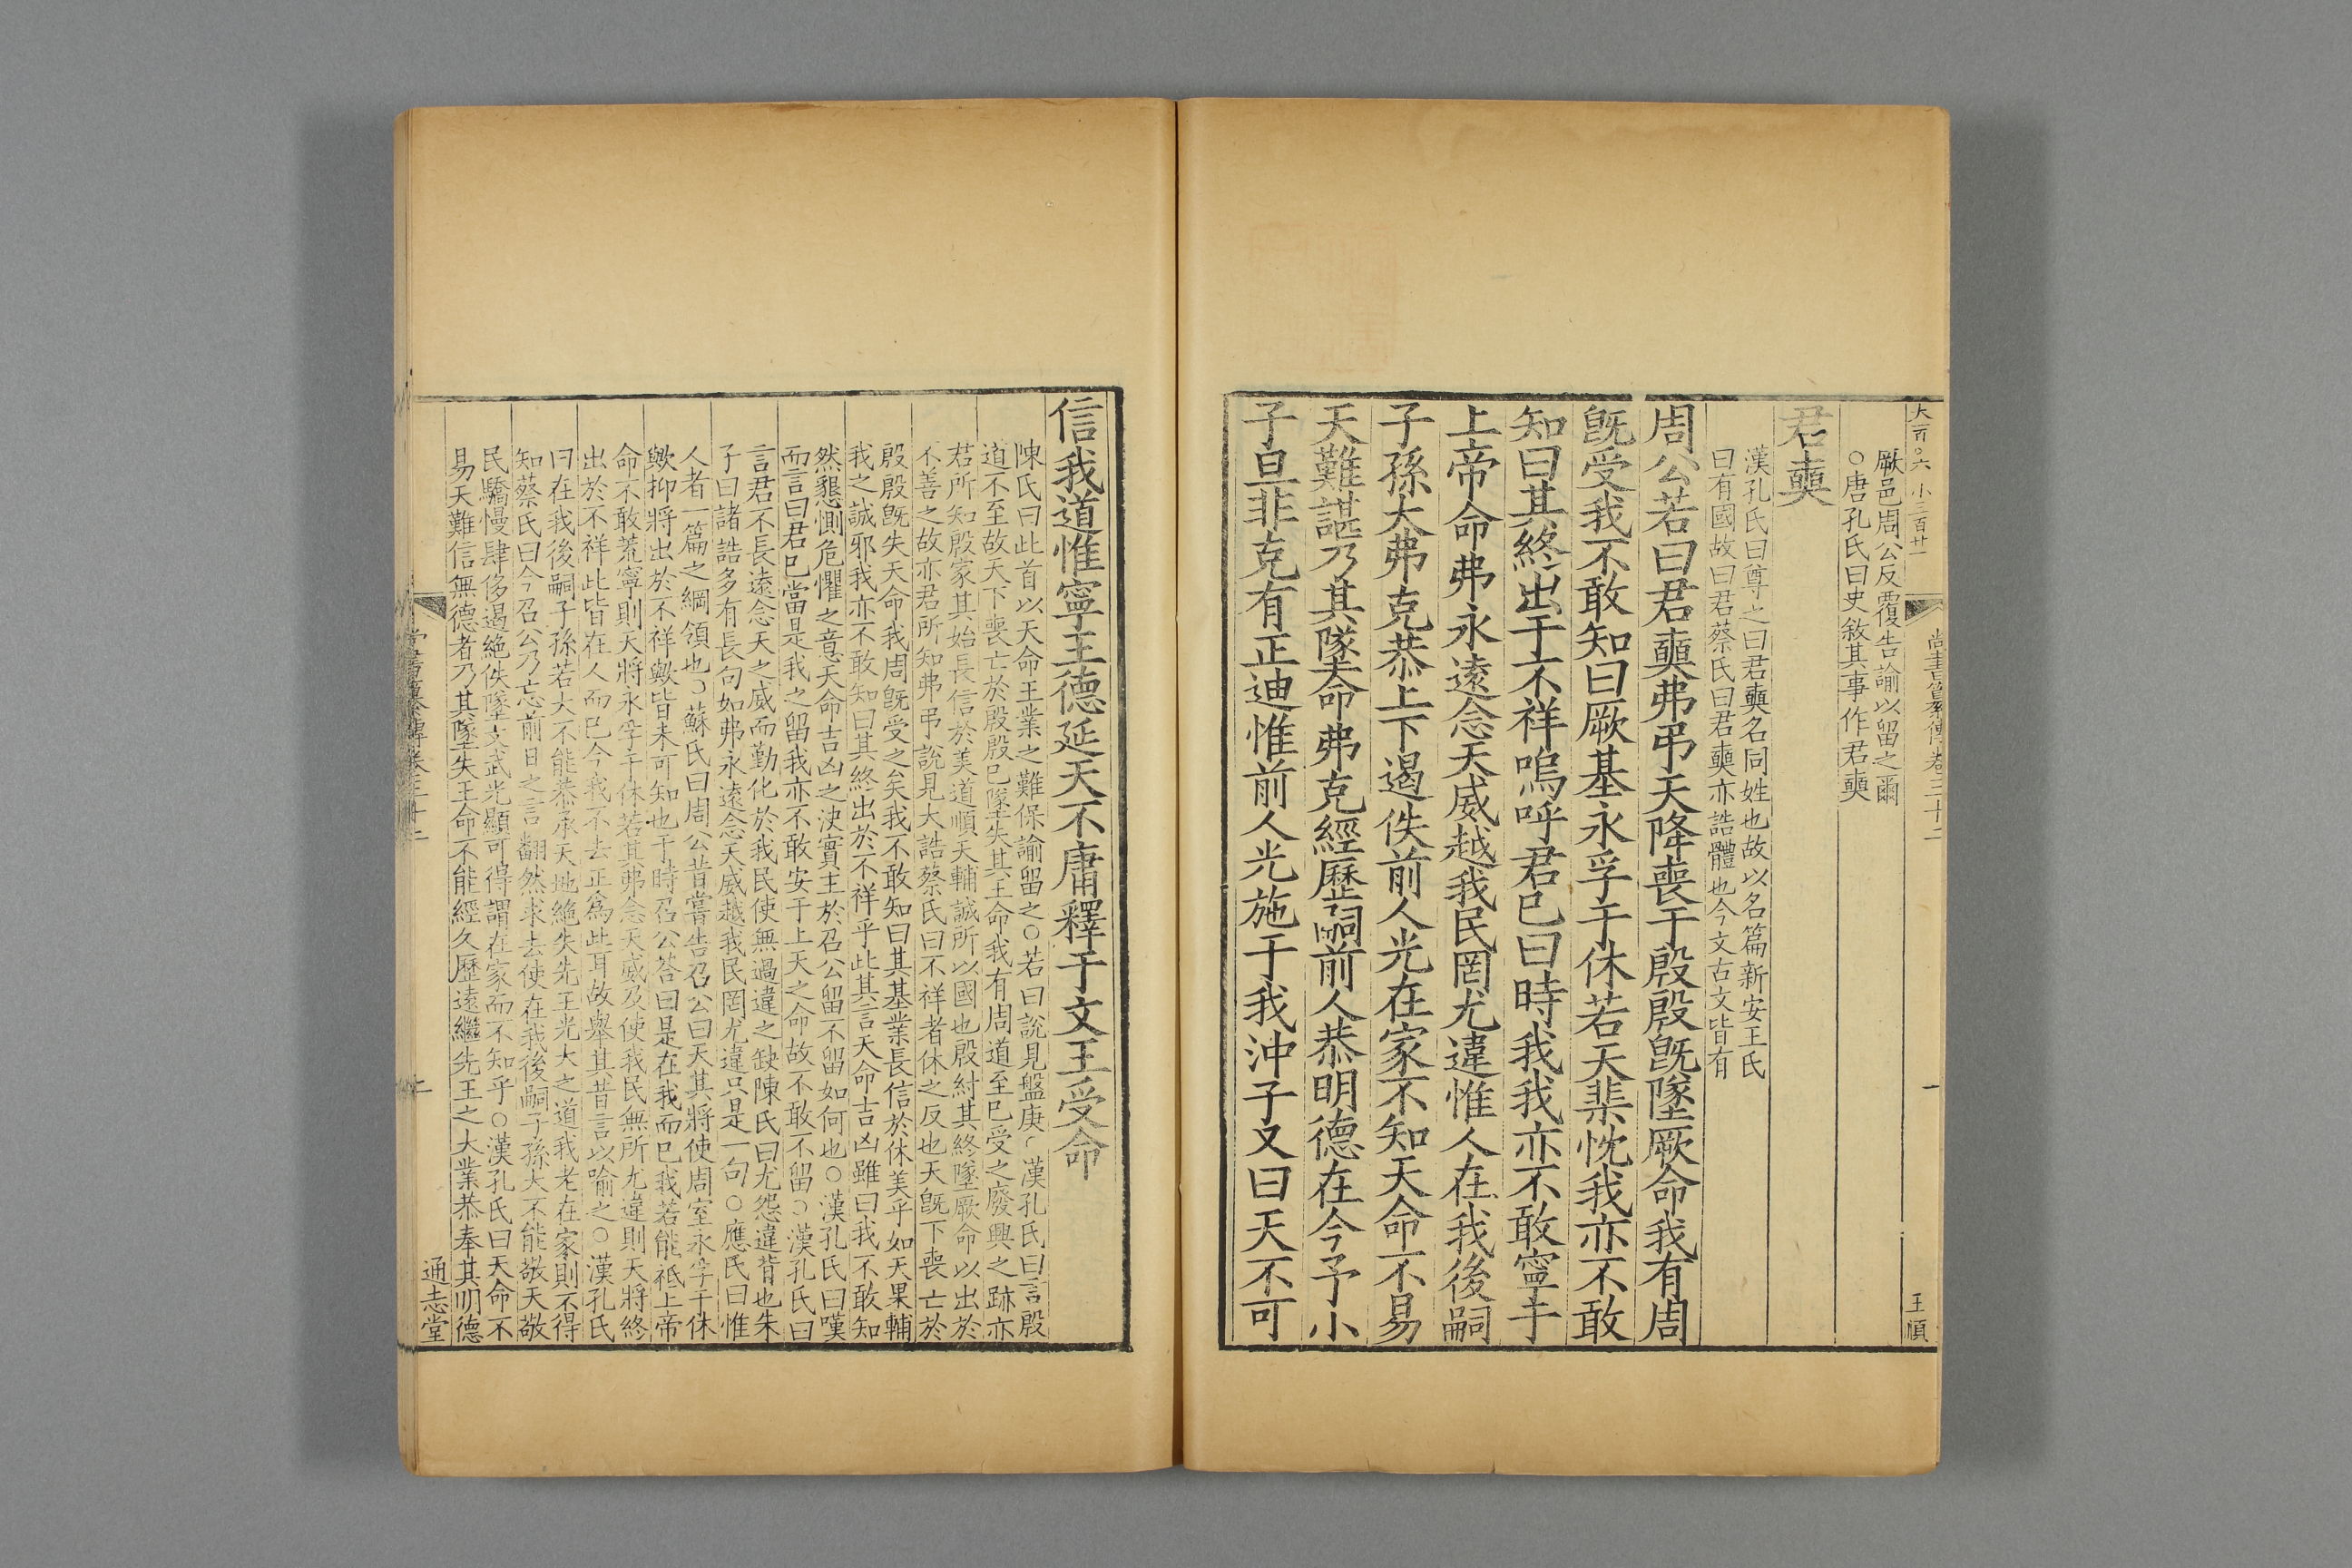 厥邑周公反覆告諭以留之爾
○唐孔氏曰史敘其事作君奭
君奭
漢孔氏曰尊之曰君奭名同姓也故以名篇新安王氏
曰有國故曰君蔡氏曰君奭亦誥體也今文古文皆有
周公若曰君奭弗弔天降喪于殷殷旣墜厥命我有周
旣受我不敢知曰厥基永孚于休若天棐忱我亦不敢
知曰其終出于不祥嗚呼君已曰時我我亦不敢寧于
上帝命弗永遠念天威越我民罔尤違惟人在我後嗣
子孫大弗克恭上下遏佚前人光在家不知天命不易
天難諶乃其隊命弗克經歷嗣前人恭明德在今予小
子旦非克有正迪惟前人光施于我沖子又曰天不可
王順
信我道惟寧王德延天不庸釋于文王受命
陳氏曰此首以天命王業之難保諭留之○若曰說見盤庚○漢孔氏曰言殷
道不至故天下喪亡於殷殷已墜失其王命我有周道至已受之廢興之跡亦
君所知殷家其始長信於美道順天輔誠所以國也殷紂其終墜厥命以出於
不善之故亦君所知弗弔說見大誥蔡氏曰不祥者休之反也天旣下喪亡於
殷殷旣失天命我周旣受之矣我不敢知曰其基業長信於休美乎如天果輔
我之誠邪我亦不敢知曰其終出於不祥乎此其言天命吉凶雖曰我不敢知
然懇惻危懼之意天命吉凶之決實主於召公留不留如何也○漢孔氏曰嘆
而言曰君已當是我之留我亦不敢安于上天之命故不敢不留○漢孔氏曰
言君不長遠念天之威而勤化於我民使無過違之缺陳氏曰尤怨違背也朱
子曰諸誥多有長句如弗永遠念天威越我民罔尤違只是一句○應氏曰惟
人者一篇之綱領也○蘇氏曰周公昔嘗告召公曰天其將使周室永孚于休
歟抑將出於不祥歟皆未可知也于時召公答曰是在我而已我若能祗上帝
命不敢荒寧則天將永孚于休若其弗念天威及使我民無所尤違則天將終
出於不祥此皆在人而已今我不去正為此耳故舉其昔言以喻之○漢孔氏
曰在我後嗣子孫若大不能恭承天地絶失先王光大之道我老在家則不得
知蔡氏曰今召公乃忘前日之言翻然求去使在我後嗣子孫大不能敬天敬
民驕慢肆侈遏絶佚墜文武光顯可得謂在家而不知乎○漢孔氏曰天命不
易天難信無德者乃其墜失王命不能經久歷遠繼先王之大業恭奉其明德
通志堂